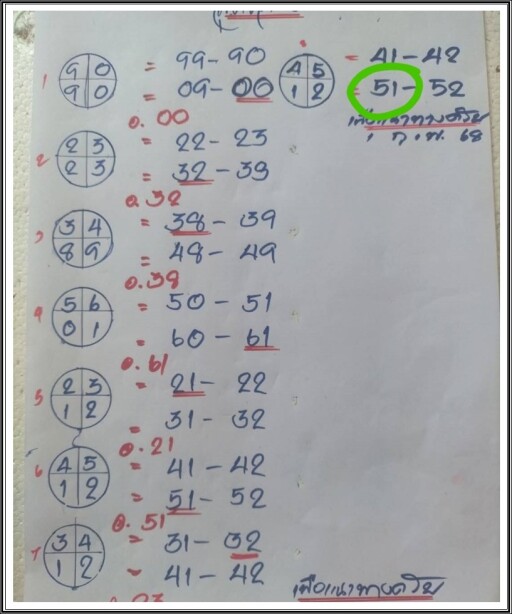 1 9 0 = 99 - 90
9 0 = 09 - 00
อ. 00
2 2 3 = 22 - 23
2 3 = 32 - 33
อ. 32
3 3 4 = 38 - 39
8 9 = 48 - 49
อ. 38
4 5 6 = 50 - 51
0 1 = 60 - 61
อ. 61
5 2 3 = 21 - 22
1 2 = 31 - 32
อ. 21
6 4 5 = 41 - 42
1 2 = 51 - 52
อ. 51
7 3 4 = 31 - 32
1 2 = 41 - 42
4 5 = 41 - 42
1 2 = 51 - 52
เพื่อแนวทางครับ
1 ก.พ. 68
เพื่อแนวทางครับ